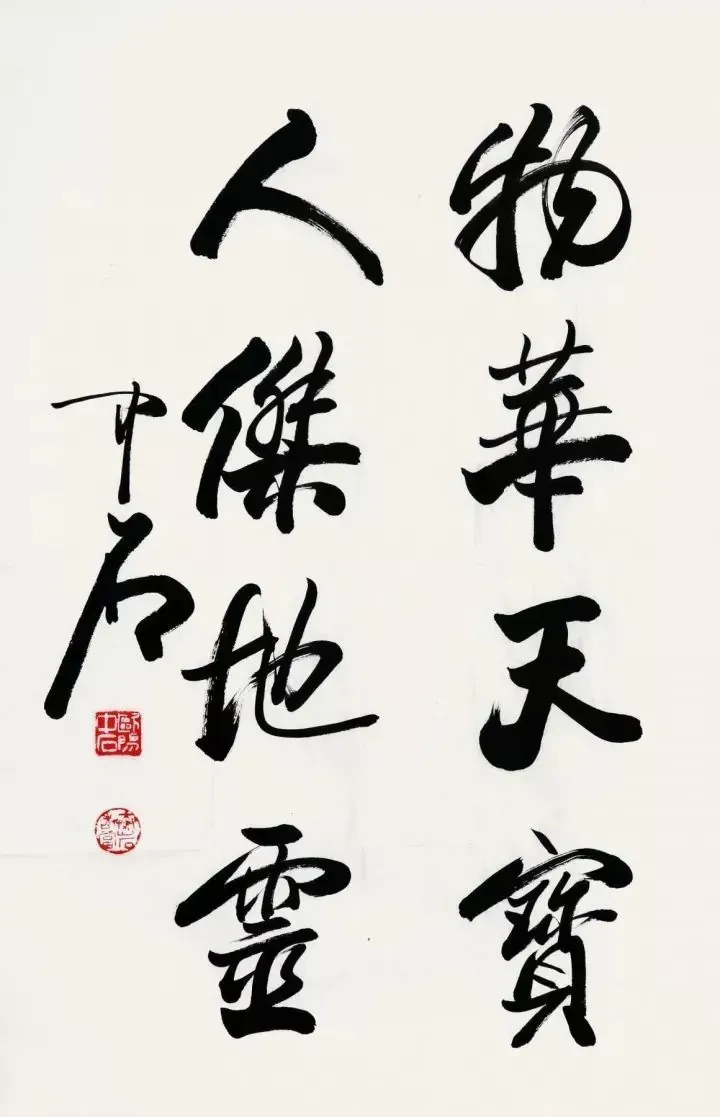 物華天寶
人傑地靈
中石
歐陽中石